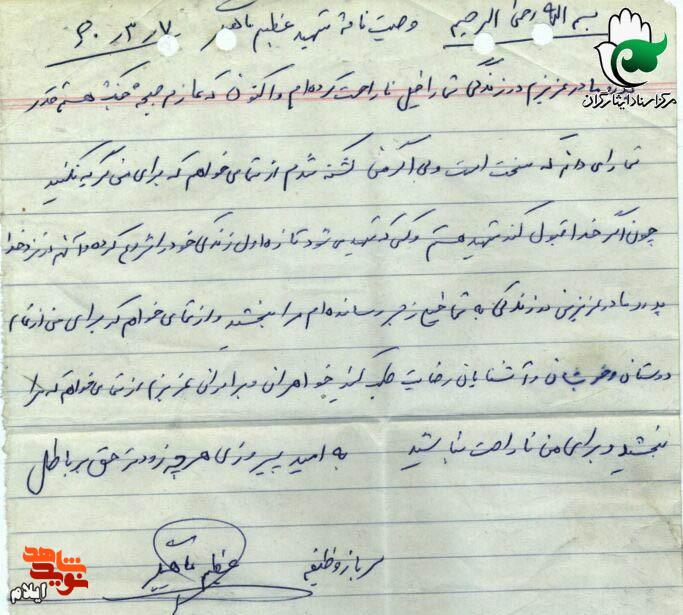 بسم الله الرحمن الرحیم وصیت نامهٔ شهید عظیم ماهگیر ۶۰/۳/۷
مرکز اسناد ایثارگران
پدر و مادر عزیزم در زندگی شما را خیلی ناراحت کرده‌ام و اکنون که عازم جبهه جنگ هستم قدر
شما را می دانم که سخت است ولی اگر من کشته شدم از شما می خواهم که برای من گریه نکنید
چون اگر خدا قبول کند شهید هستم و کسی که شهید می شود تازه اول زندگی خود را شروع کرده و آنهم در نزد خدا
پدر و مادر عزیز من در زندگی به شما خیلی زجر رسانده‌ام مرا ببخشید و از شما می خواهم که برای من از تمام
دوستان و خویشان و آشنایان رضایت طلب کنید خواهران و برادران عزیزم از شما می خواهم که مرا
ببخشید و برای من ناراحت نباشید به امید پیروزی هر چه زودتر حق بر باطل
سرباز وظیفه عظیم ماهگیر
نوید شاهد
ایلام